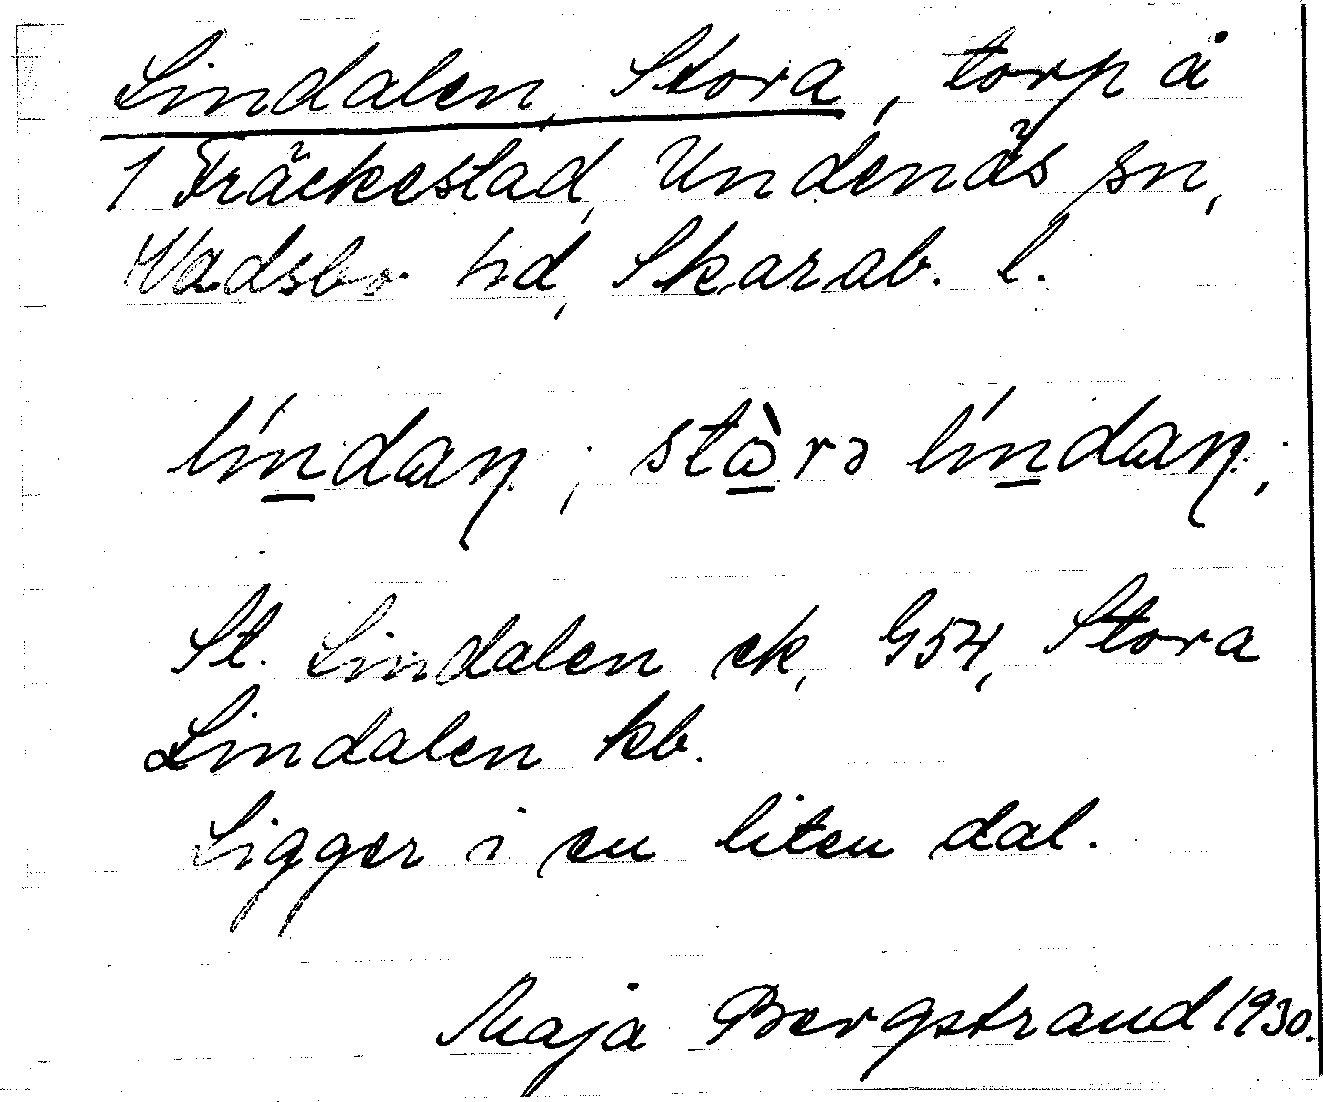 Lindalen, Stora, torp å
1 Fräckestad, Undenäs sn,
Wadsbo hd, Skarab. l.
St. Lindalen ek, G54, Stora
Lindalen kb.
Ligger i en liten dal.
Maja Bergstrand 1930.